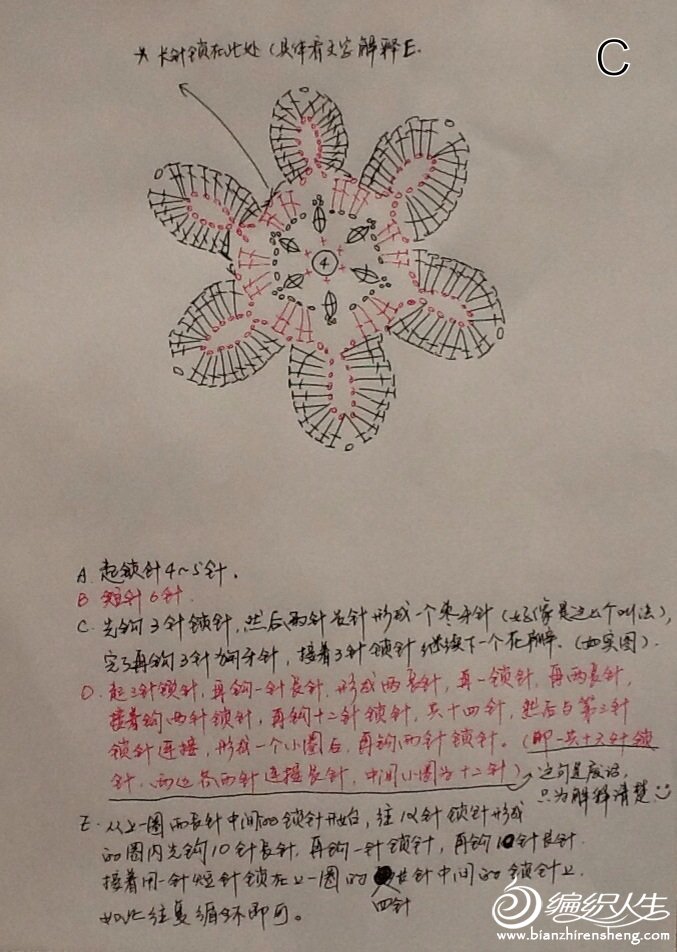 长针锁在此处（具体看文字解释E.
C
4
A. 起锁针4~5针.
B 短针6针.
C. 先钩3针锁针，然后两针长针形成一个枣牙针（好像是这么个叫法），
完了再钩3针为狗牙针，接着3针锁针继续下一个花瓣.（如实图）.
D. 起3针锁针，再钩一针长针，形成两长针，再一锁针，再两长针，
接着钩两针锁针，再钩十二针锁针，共十四针，然后与第三针
锁针连接，形成一个小圈后，再钩两针锁针。（即一共十六针锁
针，两边各两针连接长针，中间小圈为十二针）
这句是废话，
只为解释清楚
E. 从上一圈两长针中间的锁针开始，往12针锁针形成
的圈内先钩10针长针，再钩一针锁针，再钩10针长针.
接着用一针短针锁在上一圈的 长针中间的锁针上.
四针
如此往复循环即可。
编织人生
www.bianzhirensheng.com